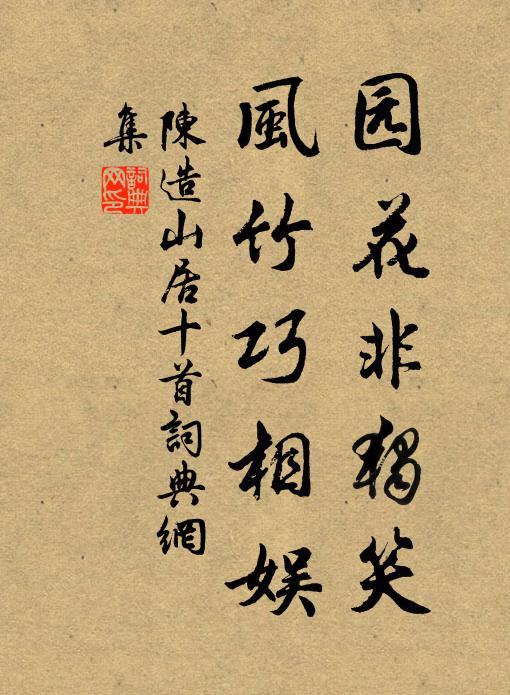 园花非獨笑
風竹巧相娱
陳造山居十首詞典網
集
詞典网印